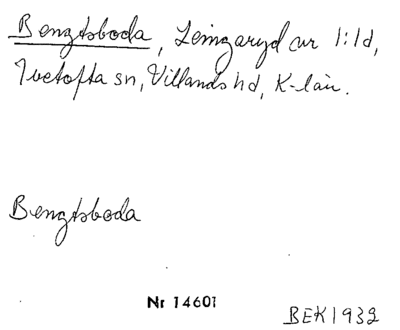 Bengtsboda, Leingaryd nr 1:1d,
Ivetofta sn, Villands hd, K-län.
Bengtsboda
Nr 14601
BEK1932